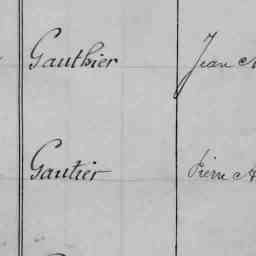 Gauthier Jean
Gautier Pierre